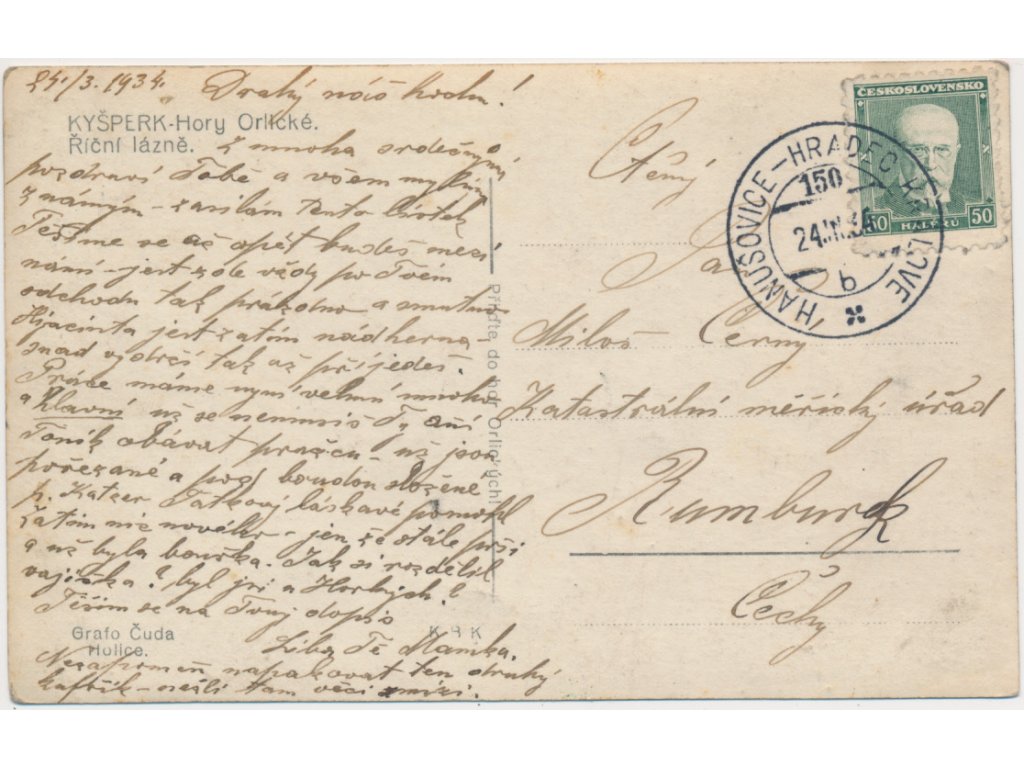 24./3. 1934. Drahý náš hochu!
KYŠPERK-Hory Orlické.
Říční lázně.
Z mnoha srdečnými
pozdravi Tobě a všem milým
známým - zasílám tento lístek
Těšíme se až opět budeš mezi
námi - jest zde vždy po Tvém
odchodu tak prázdno a smutno
Hjacinta jest zatím nádherná
snad vydrží tak až přijedeš.
Práce máme nyní velmi mnoho
a hlavní už se nemusíš Ty ani
Toník obávat už jsou
pořezané a pod boudou složené
p. Katzer Tatkovy láskavě pomohl
Zatím nic nového - jen že stále prší
a už byla bouřka. Jak si rozdělil
vajíčka? byl jsi u Horkých?
Těším se na Tvůj dopis
Líbá Tě Mamka.
Nezapomeň napakovat ten druhý
kufřík - nejsli tam věci
Grafo Čuda
Holice.
K R K
Přijďte, do hor Orlických!
ČESKOSLOVENSKO
50 HALÉŘŮ 50
HANUŠOVICE - HRADEC KRÁLOVÉ
150
b
Ctěný
Pan
Miloš Černý
Katastrální měřický úřad
Rumburk
Čechy